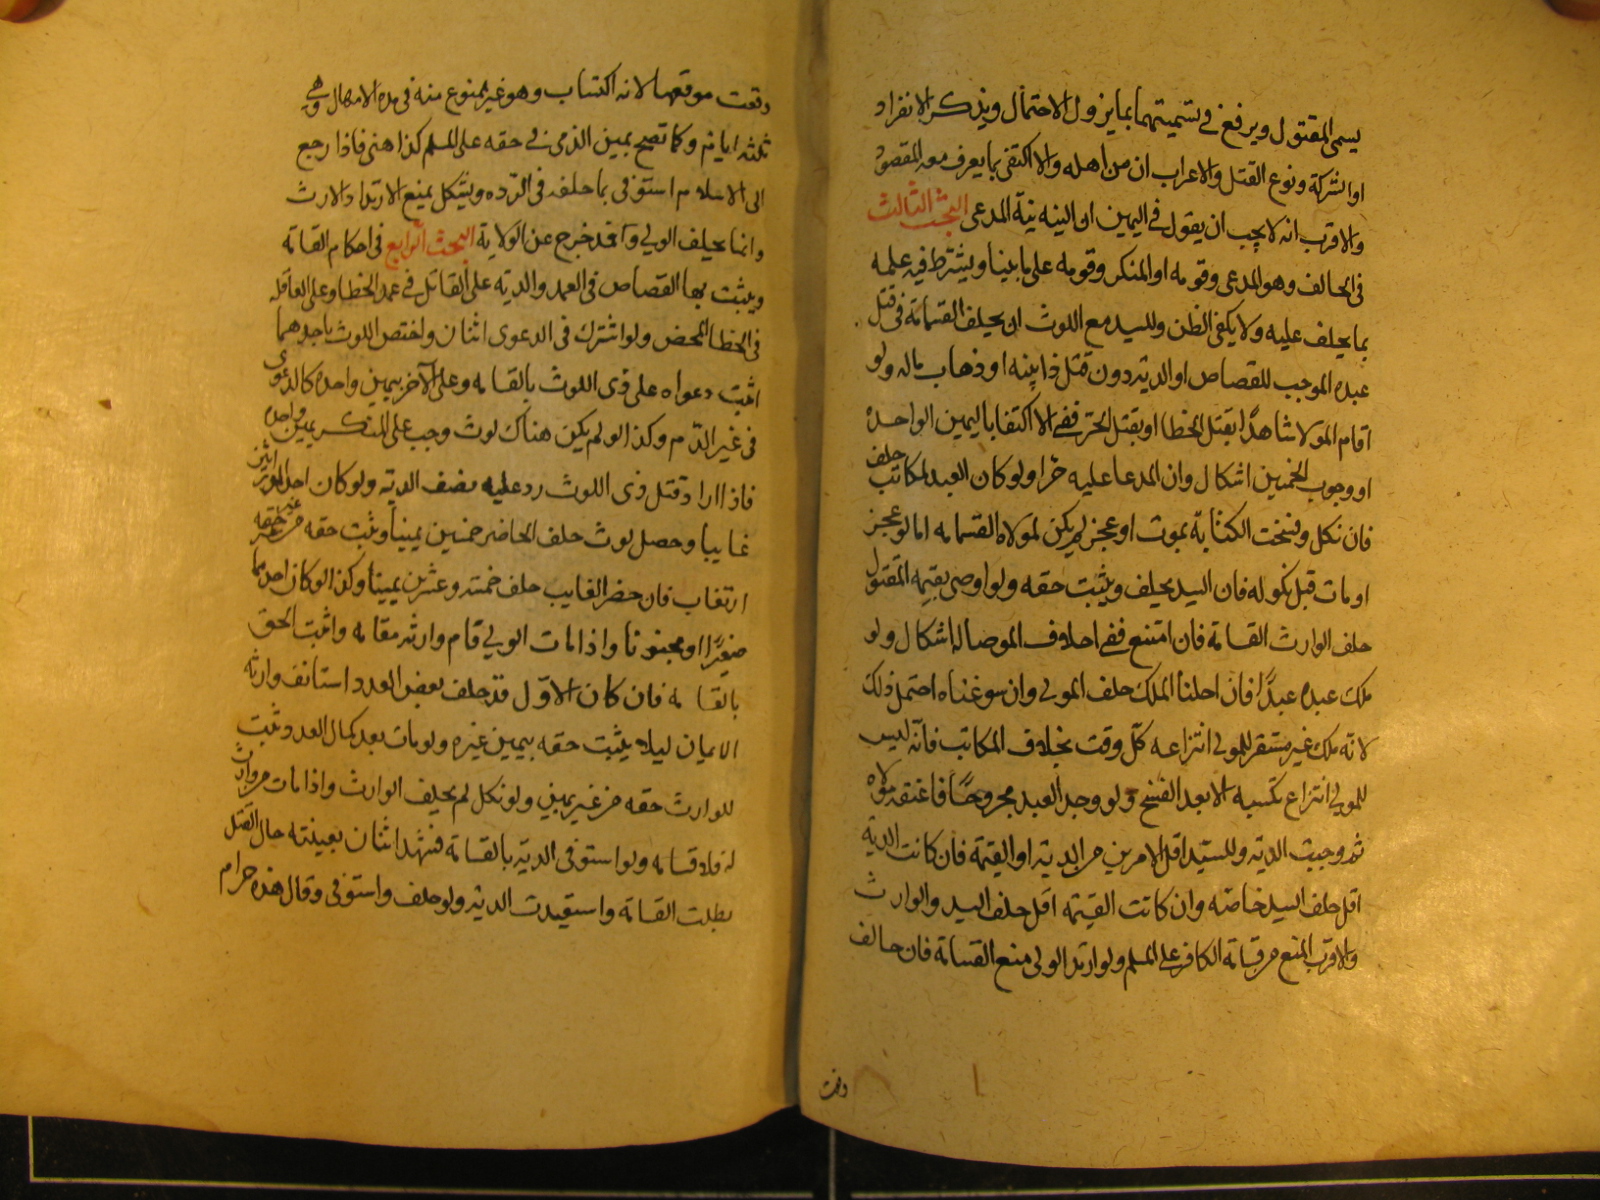 يسمى المقتول ويرفع في تسميتهما بما يزول الاحتمال ويذكر الانفراد
او الشركة ونوع القتل والاعراب ان من اهله والا اكتفى بما يعرف معه المقصود
والاقرب انه لا يجب ان يقول في اليمين ان النيه نية المدعى البحث الثالث
في الحالف وهو المدعى وقومه او المنكر وقومه على ما بينا ويشترط فيه علمه
بما يحلف عليه ولا يكفى الظن وللسيد مع اللوث ان يحلف القسامة في قتل
عبده الموجب للقصاص او الدية دون قتل دابته او ذهاب ماله ولو
اقام المولا شاهدا بقتل الخطا او بقتل الحر ففي الاكتفا باليمين الواحده
او وجوب الخمسين اشكال وان المدعا عليه حرا ولو كان العبد لمكاتب حلف
فان نكل وفسخت الكتابة بموت او عجز لم يكن لمولاه القسامه اما لو عجز
او مات قبل نكوله فان السيد يحلف ويثبت حقه ولو اوصى بقيمه المقتول
حلف الوارث القسامة فان امتنع ففي احلاف الموصا له اشكال ولو
ملك عبده عبدا فان احلنا الملك حلف المولى وان سوغناه احتمل ذلك
لانه ملك غير مستقر للمولى انتزاعه كل وقت بخلاف المكاتب فانه ليس
للمولى انتزاع كسبه الا بعد الفسخ ولو وجد العبد مجروحا فاعتقه مولاه
ثم وجبت الدية وللسيد اقل الامرين من الدية او القيمة فان كانت الدية
اقل حلف السيد خاصة وان كانت القيمة اقل حلف السيد والوارث
والاقرب المنع من قسامة الكافر على المسلم ولو ارتد الولى منع القسامة فان حالف
وقعت
وقعت موقعها لانه اكتساب وهو غير ممنوع منه في مدة الامهال وهي
ثلثه ايام وكما تصح يمين الذمى في حقه على المسلم كذا هنى فاذا رجع
الى الاسلام استوفى بما حلفه في الرده ويشكل بمنع الارتداد الارث
وانما يحلف الولى وقد خرج عن الولاية البحث الرابع في احكام القسامة
ويثبت بها القصاص في العمد والدية على القاتل في عمد الخطا وعلى العاقله
في الخطا المحض ولو اشترك في الدعوى اثنان واختص اللوث باحدهما
اثبت دعواه على ذى اللوث بالقسامه وعلى الآخر بيمين واحدة كالدعوى
في غير الدم وكذا لو لم يكن هناك لوث وجب على المنكر يمين واحدة
فاذا اراد قتل ذى اللوث رد عليه نصف الدية ولو كان احد الوليين
غايبا وحصل لوث حلف الحاضر خمسين يمينا ويثبت حقه من غير
ارتقاب فان حضر الغايب حلف خمسة وعشرين يمينا وكذا لو كان احدهما
صغيرا او مجنونا واذا مات الولى قام وارثه مقامه واثبت الحق
بالقسامه فان كان الاول قد حلف بعض العدد استانف وارثه
الايمان ليلا يثبت حقه بيمين غيره ولو مات بعد كمال العدد ثبت
للوارث حقه من غير يمين ولو نكل لم يحلف الوارث واذا مات من لا وارث
له فلا قسامه ولو استوفى الدية بالقسامة فشهد اثنان بغيبته حال القتل
بطلت القسامة واستعيدت الدية ولو حلف واستوفى وقال هذه حرام